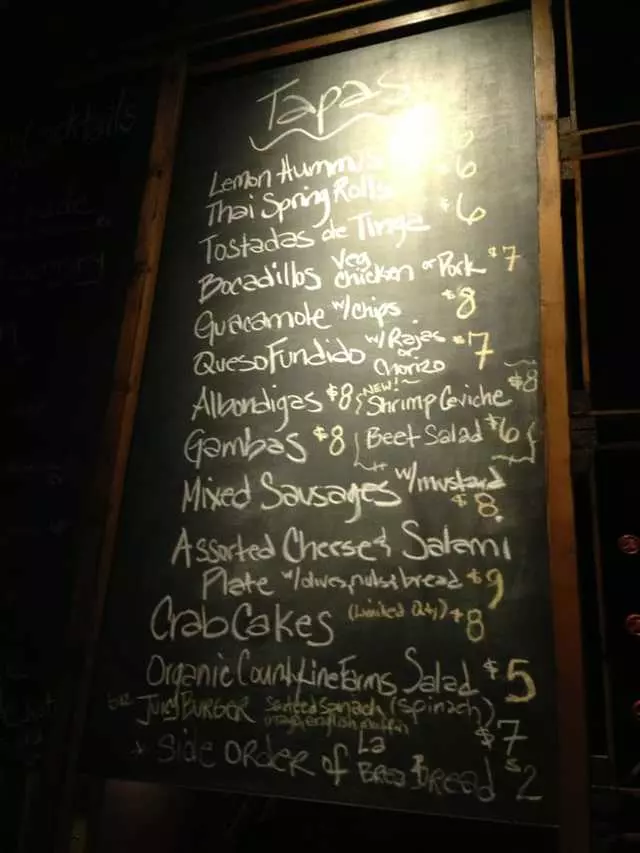 Cocktails
Tapas
Lemon Hummus 6
Thai Spring Rolls 6
Tostadas de Tinga $6
Bocadillos Veg Chicken or Pork $7
Guacamole w/chips $8
Queso Fundido w/ Rajas or Chorizo $7
Albondigas $8
NEW! Shrimp Ceviche $8
Gambas $8
Beet Salad $6
Mixed Sausages w/mustard $8
Assorted Cheese & Salami
Plate w/olives, nuts & bread $9
Crab Cakes (Limited Qty) $8
Organic County Line Farms Salad $5
Juicy BURGER (spinach) $7
Side Order of La Brea Bread $2